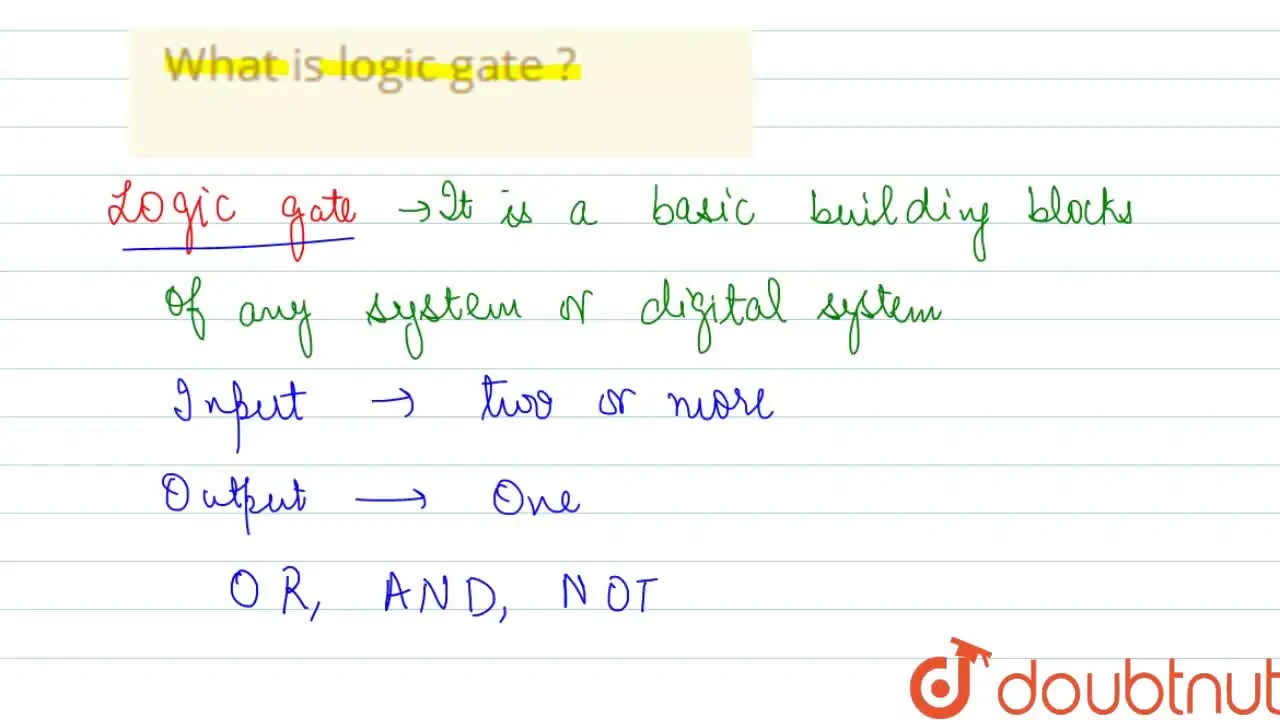 What is logic gate ?
Logic gate → It is a basic building blocks
of any system or digital system
Input → two or more
Output → One
OR, AND, NOT
doubtnut